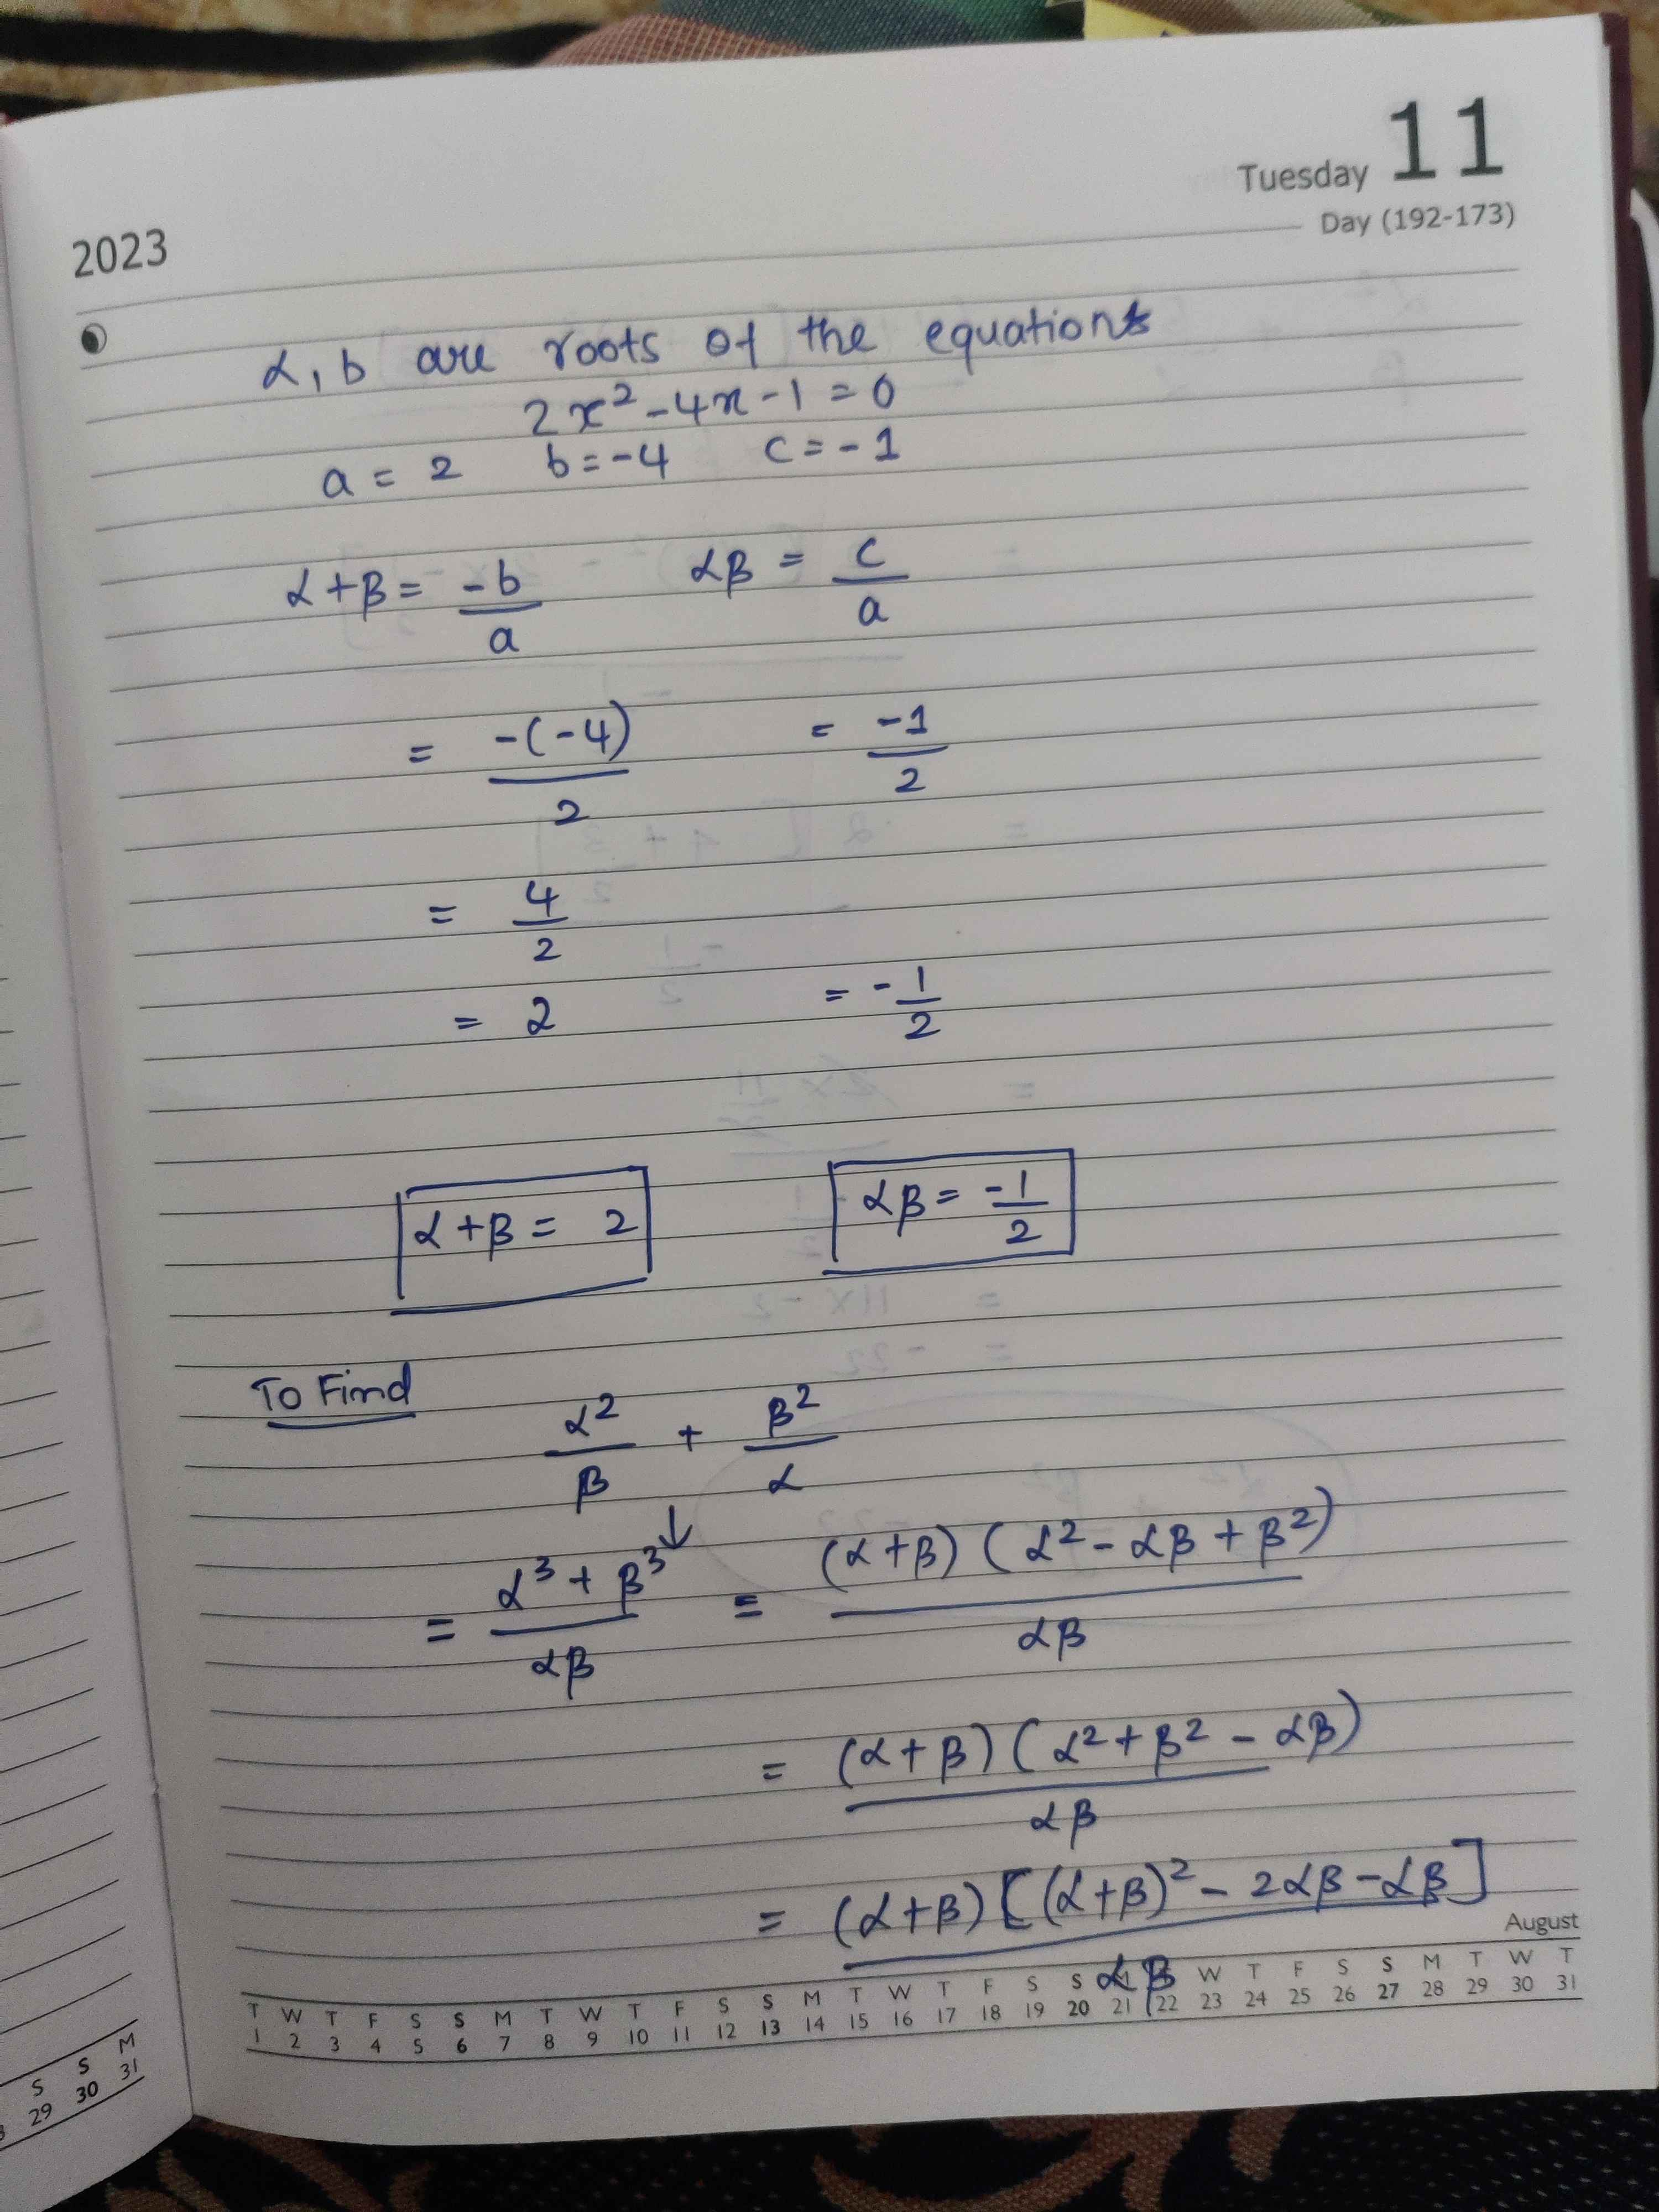 Tuesday 11
2023
Day (192-173)
α, b are roots of the equation
2x² - 4x - 1 = 0
a = 2 b = -4 c = -1
α + β = -b/a αβ = c/a
= -(-4)/2 = -1/2
= 4/2
= 2 = -1/2
α + β = 2 αβ = -1/2
To Find
α²/β + β²/α
↓
= α³ + β³/αβ = (α + β) (α² - αβ + β²)/αβ
= (α + β) (α² + β² - αβ)/αβ
= (α + β) [(α + β)² - 2αβ - αβ]/αβ
August
T W T F S S M T W T F S S M T W T F S S M T W T F S S M T W T
1 2 3 4 5 6 7 8 9 10 11 12 13 14 15 16 17 18 19 20 21 22 23 24 25 26 27 28 29 30 31
S S M
29 30 31